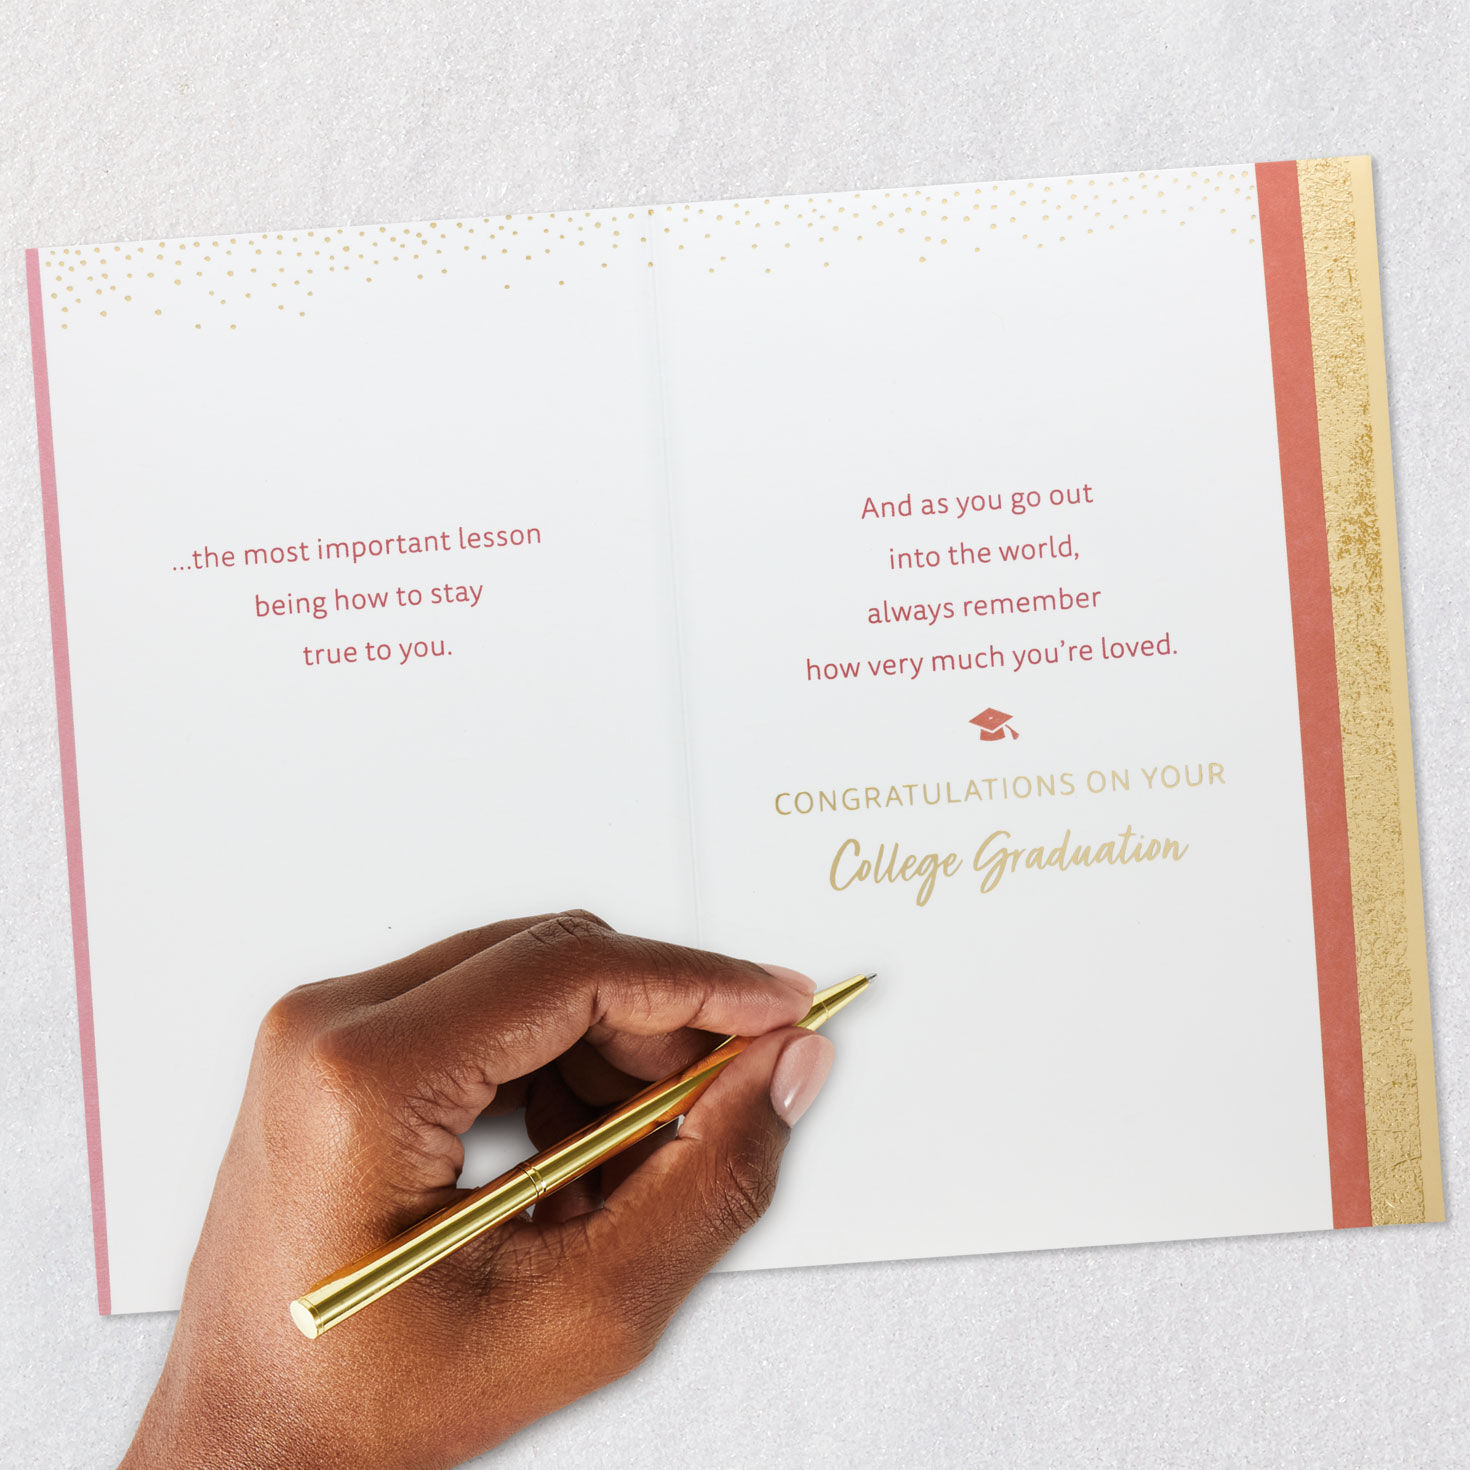 ...the most important lesson
being how to stay
true to you.
And as you go out
into the world,
always remember
how very much you're loved.
CONGRATULATIONS ON YOUR
College Graduation